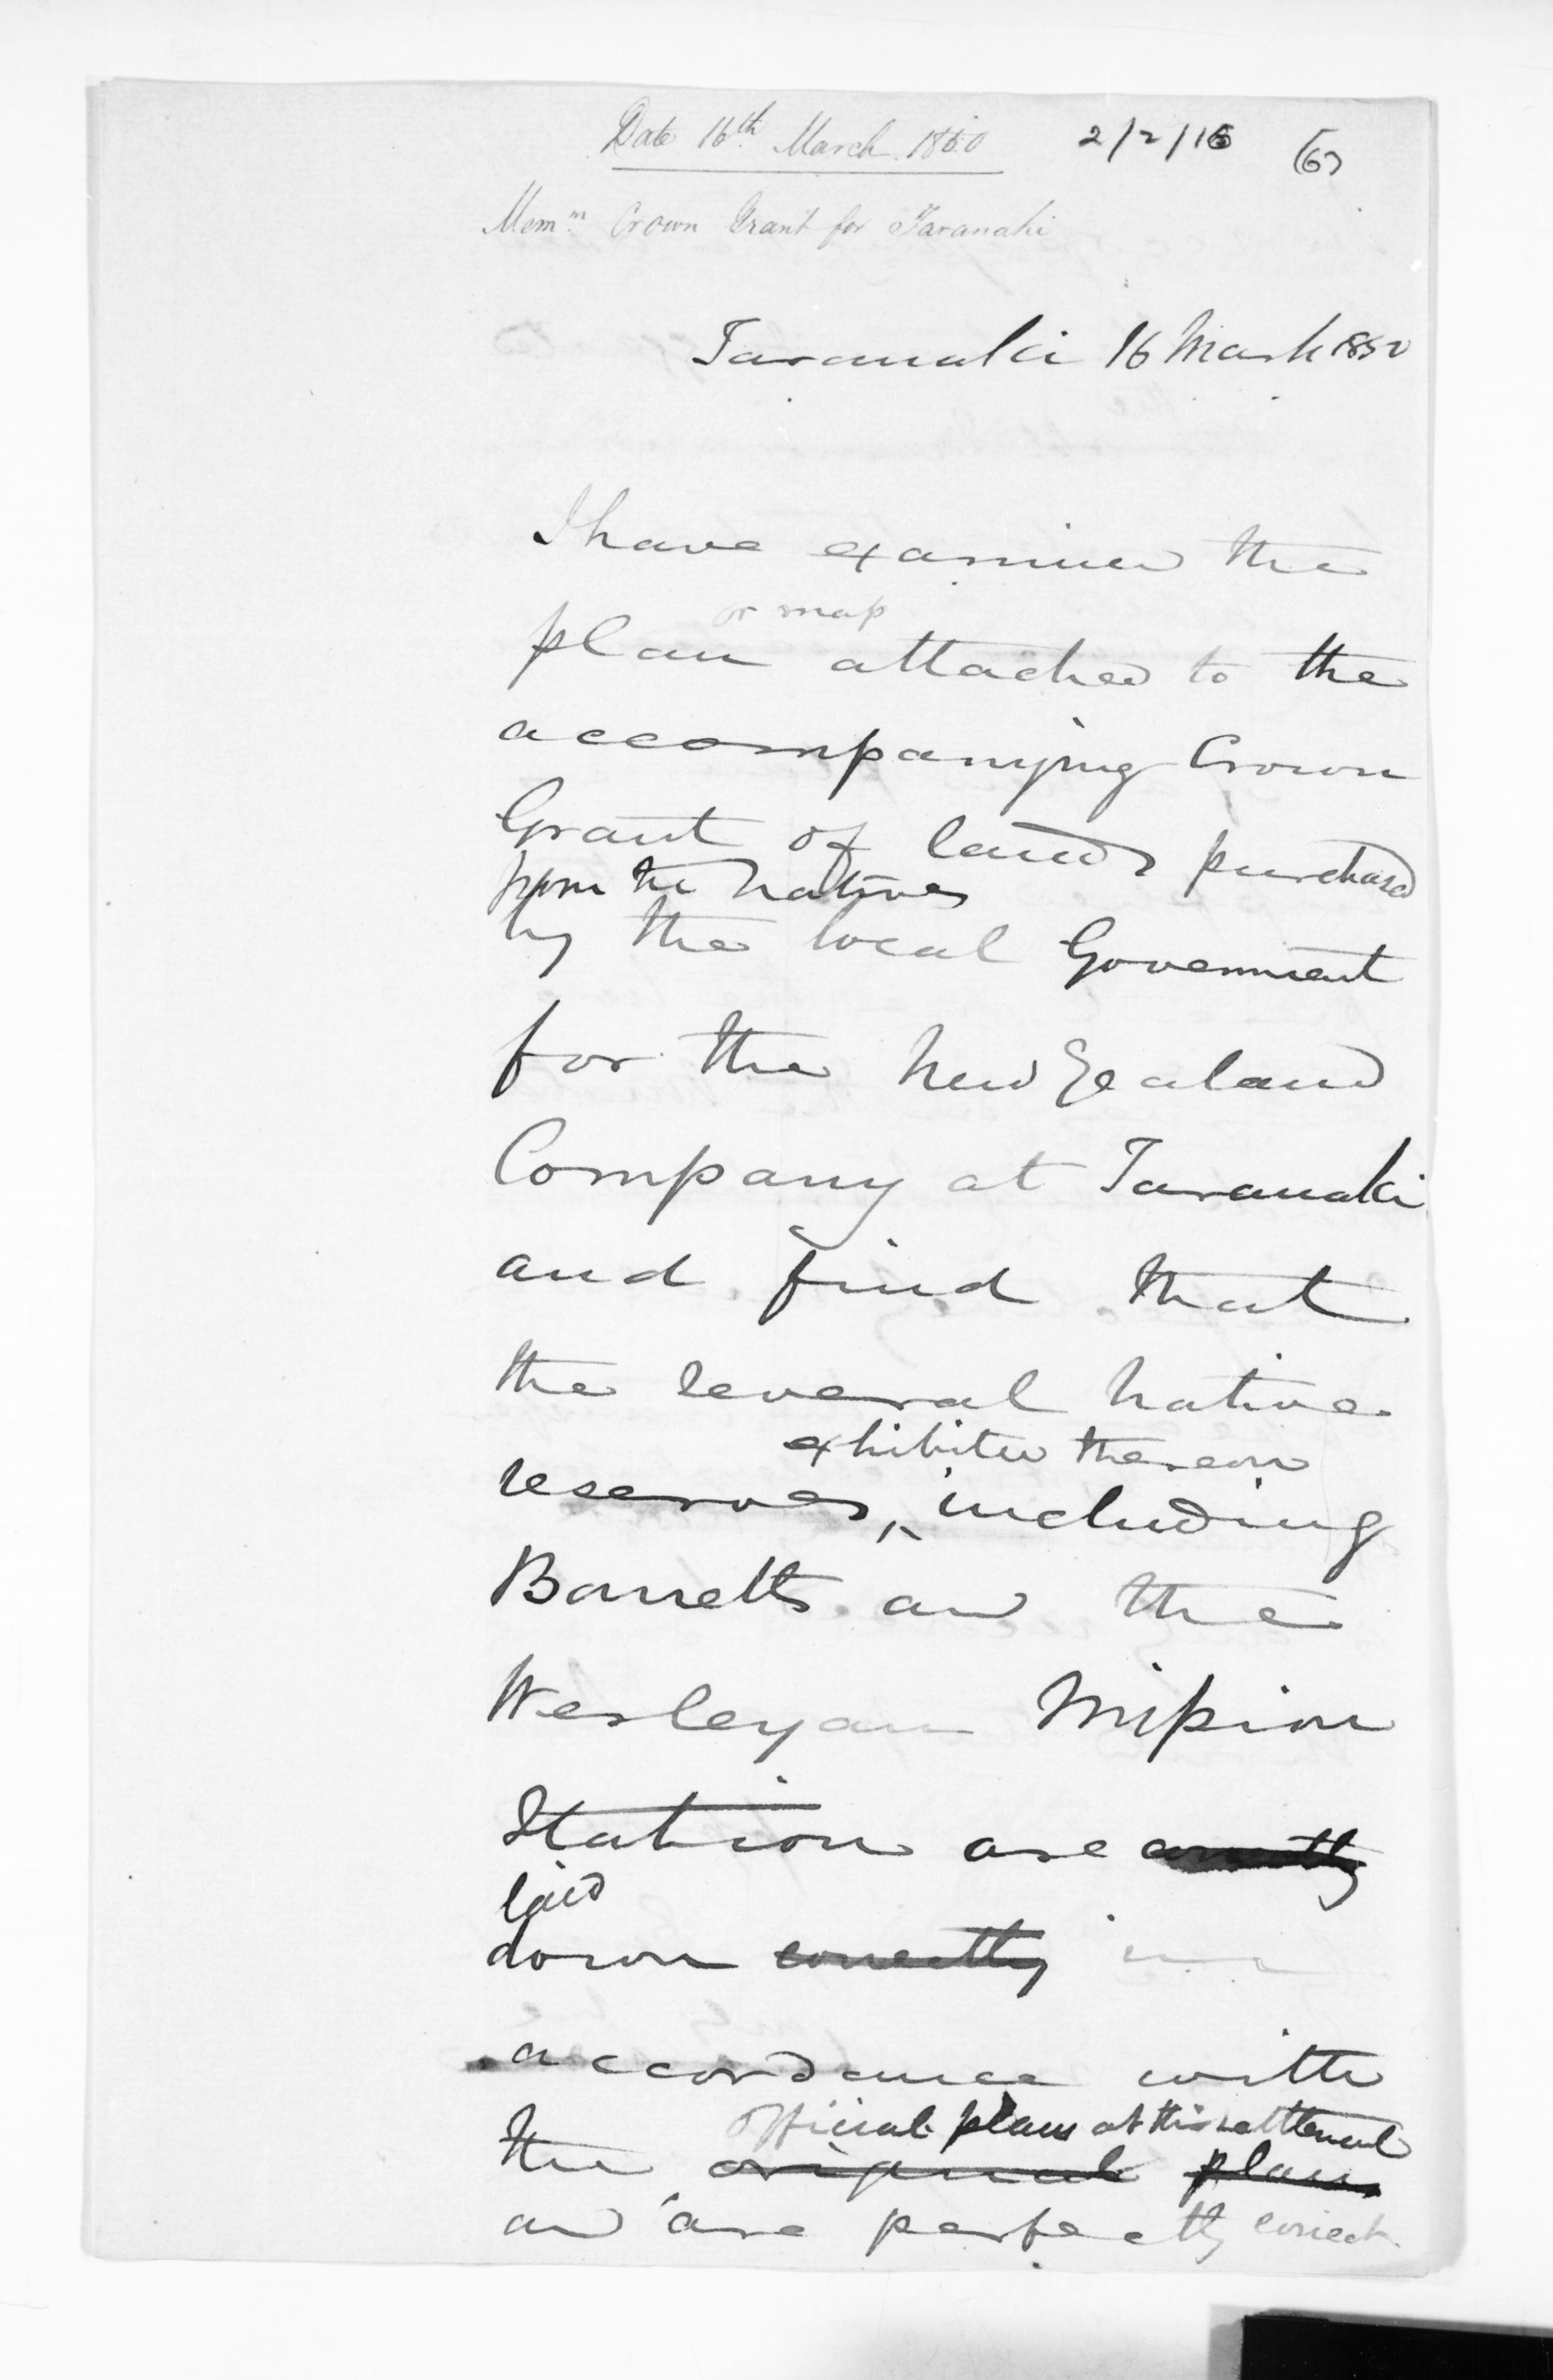 Date 16th March 1850 2/2/16 (6)
Memm Crown Grant for Taranaki
Taranaki 16 March 1850
I have examined the
or map
plan attached to the
accompanying Crown
Grant of lands purchased
from the Natives
by the local Government
for the New Zealand
Company at Taranaki
and find that
the several Native
exhibited thereon
reserves, including
Barretts and the
Wesleyan Mission
Station are correctly
laid
down correctly in
accordance with
official plans at this settlement
the original plans
and are perfectly correct